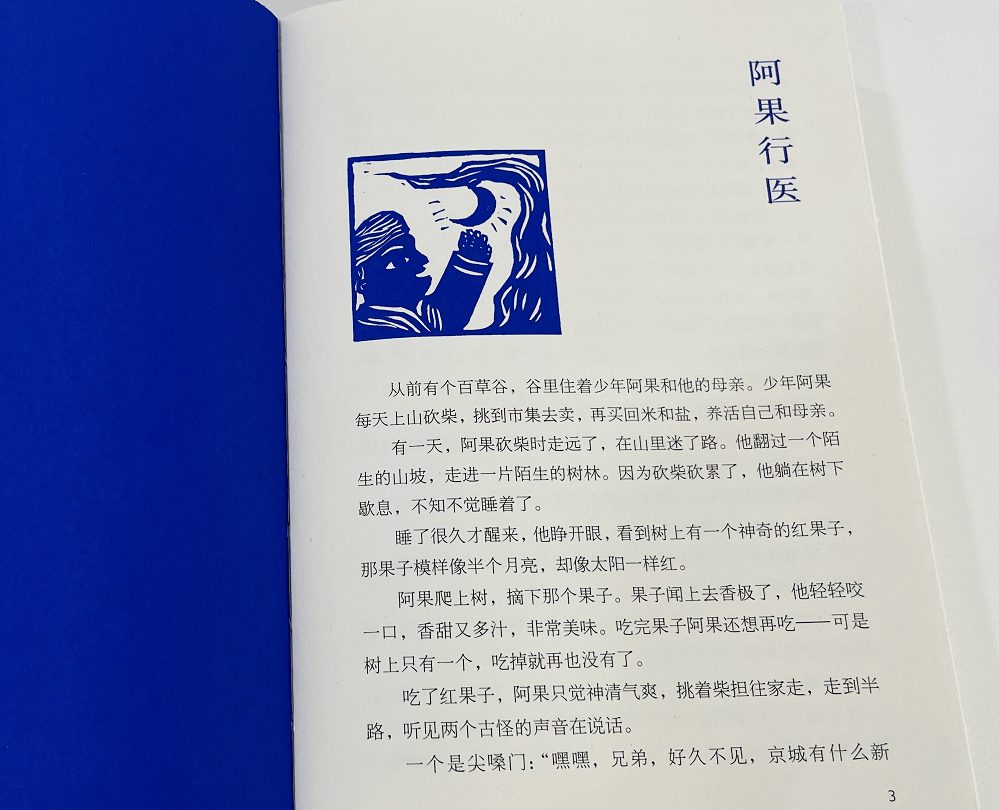 阿果行医
从前有个百草谷，谷里住着少年阿果和他的母亲。少年阿果
每天上山砍柴，挑到市集去卖，再买回米和盐，养活自己和母亲。
有一天，阿果砍柴时走远了，在山里迷了路。他翻过一个陌
生的山坡，走进一片陌生的树林。因为砍柴砍累了，他躺在树下
歇息，不知不觉睡着了。
睡了很久才醒来，他睁开眼，看到树上有一个神奇的红果子，
那果子模样像半个月亮，却像太阳一样红。
阿果爬上树，摘下那个果子。果子闻上去香极了，他轻轻咬
一口，香甜又多汁，非常美味。吃完果子阿果还想再吃——可是
树上只有一个，吃掉就再也没有了。
吃了红果子，阿果只觉神清气爽，挑着柴担往家走，走到半
路，听见两个古怪的声音在说话。
一个是尖嗓门：“嘿嘿，兄弟，好久不见，京城有什么新
3